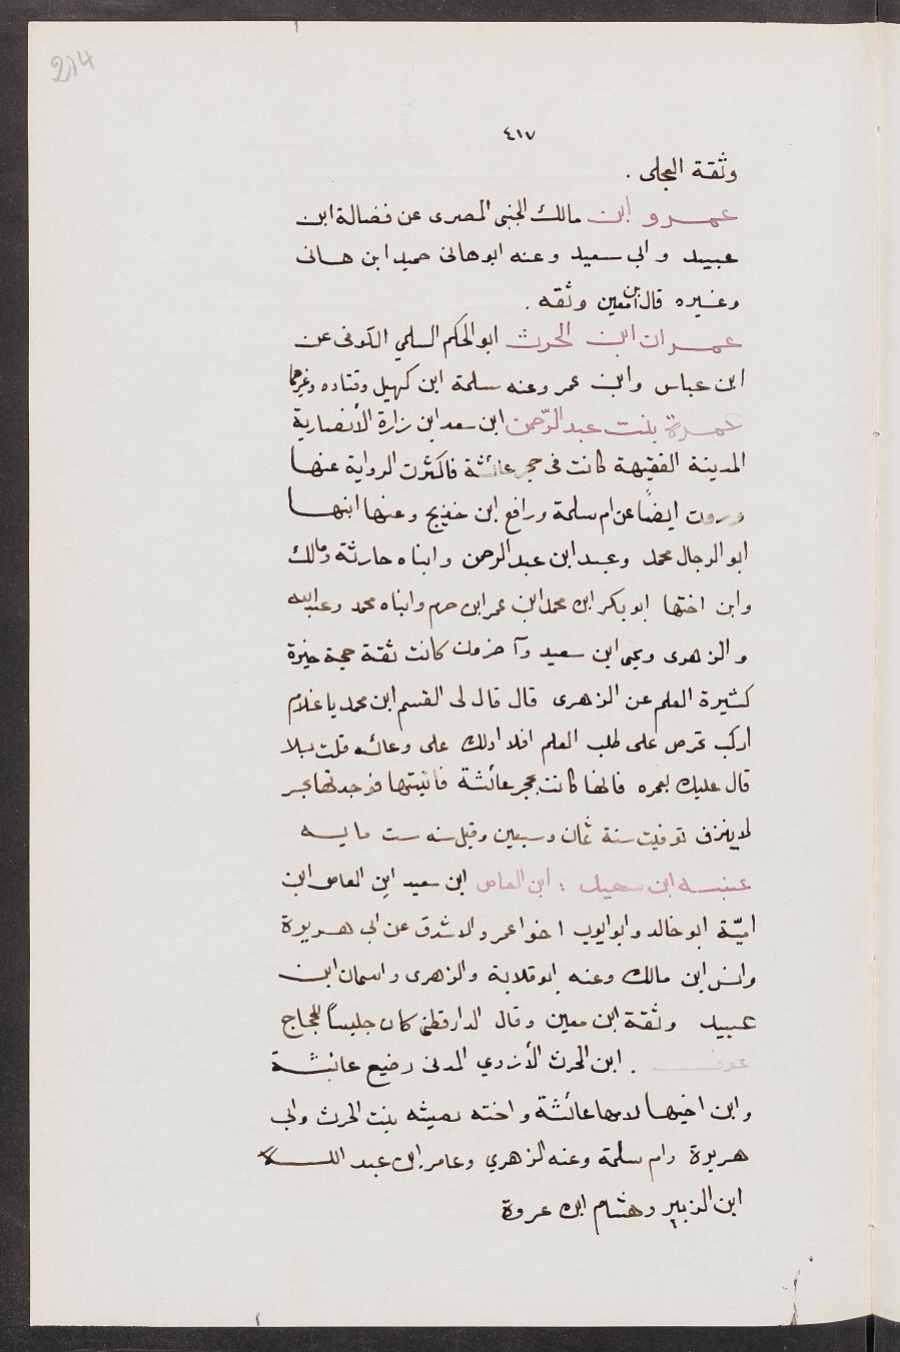 214
٤١٧
وثقة العجلى .
عمرو ابن مالك الجنبى المصرى عن فضالة ابن
عبيد وابى سعيد وعنه ابوهانى حميد ابن هانى
وغيره قال ابن معين وثقه .
عمران ابن الحرث ابو الحكم السلمي الكوفى عن
ابن عباس وابن عمر وعنه سلمة ابن كهيل وقتاده وغيرهما
عمرة بنت عبد الرّحمن ابن سعد ابن زرارة الأنصارية
المدينة الفقيهة كانت فى حجر عائشة فاكثرت الرواية عنها
وروت ايضًا عن ام سلمة ورافع ابن خديج وعنها ابنها
ابو الرجال محمد وعبد ابن عبد الرحمن وابناه حارثة ومالك
وابن اختها ابو بكر ابن محمد ابن عمر ابن حزم وابناه محمد وعبد الله
والزهرى ويحيى ابن سعيد وآخرون كانت ثقة حجة خيرة
كثيرة العلم عن الزهرى قال قال لى القسم ابن محمد يا غلام
اراك تحرص على طلب العلم افلا ادلك على وعائه قلت بلا
قال عليك بعمره فانها كانت بحجر عائشة فاتيتها فوجدتها بحر
لا ينزف توفيت سنة ثمان وسبعين وقيل سنه ست مايه
عنبسه ابن سعيد : ابن العاص ابن سعيد ابن العاص ابن
اميّة ابو خالد وابو ايوب اخو اعمر والاشدق عن ابى هريرة
وانس ابن مالك وعنه ابو قلابة والزهرى واسمان ابن
عبيد وثقة ابن معين وقال الدارقطنى كان جليسًا للحجاج
عوف . ابن الحرث الأزدي المدنى رضيع عائشة
وابن اخيها لامها عائشة واخته رميثه بنت الحرث وابى
هريرة وام سلمة وعنه الزهري وعامر ابن عبد الله
ابن الزبير وهشام ابن عروة